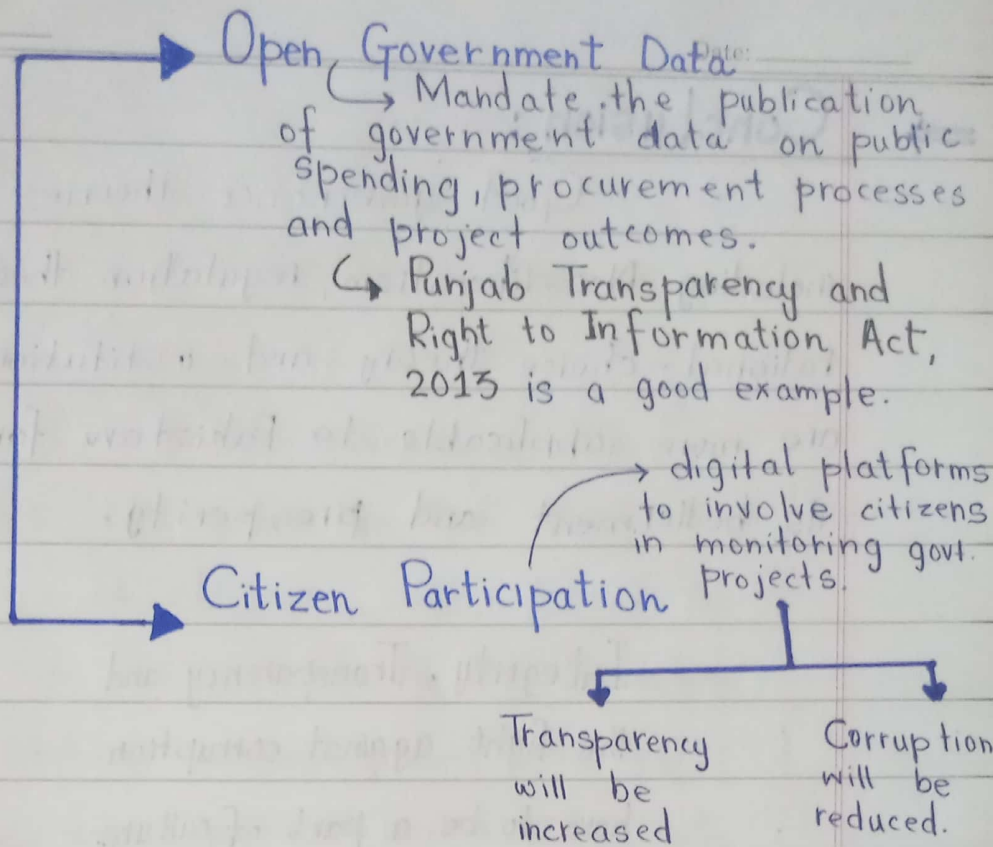 Open Government Data
Date:
Mandate the publication
of government data on public
spending, procurement processes
and project outcomes.
Punjab Transparency and
Right to Information Act,
2013 is a good example.
digital platforms
to involve citizens
in monitoring govt.
projects.
Citizen Participation
Transparency
will be
increased
Corruption
will be
reduced.